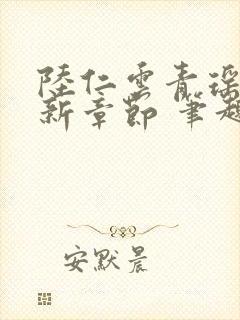 陸仁雲青瑶
新章節 筆趣
安默晨